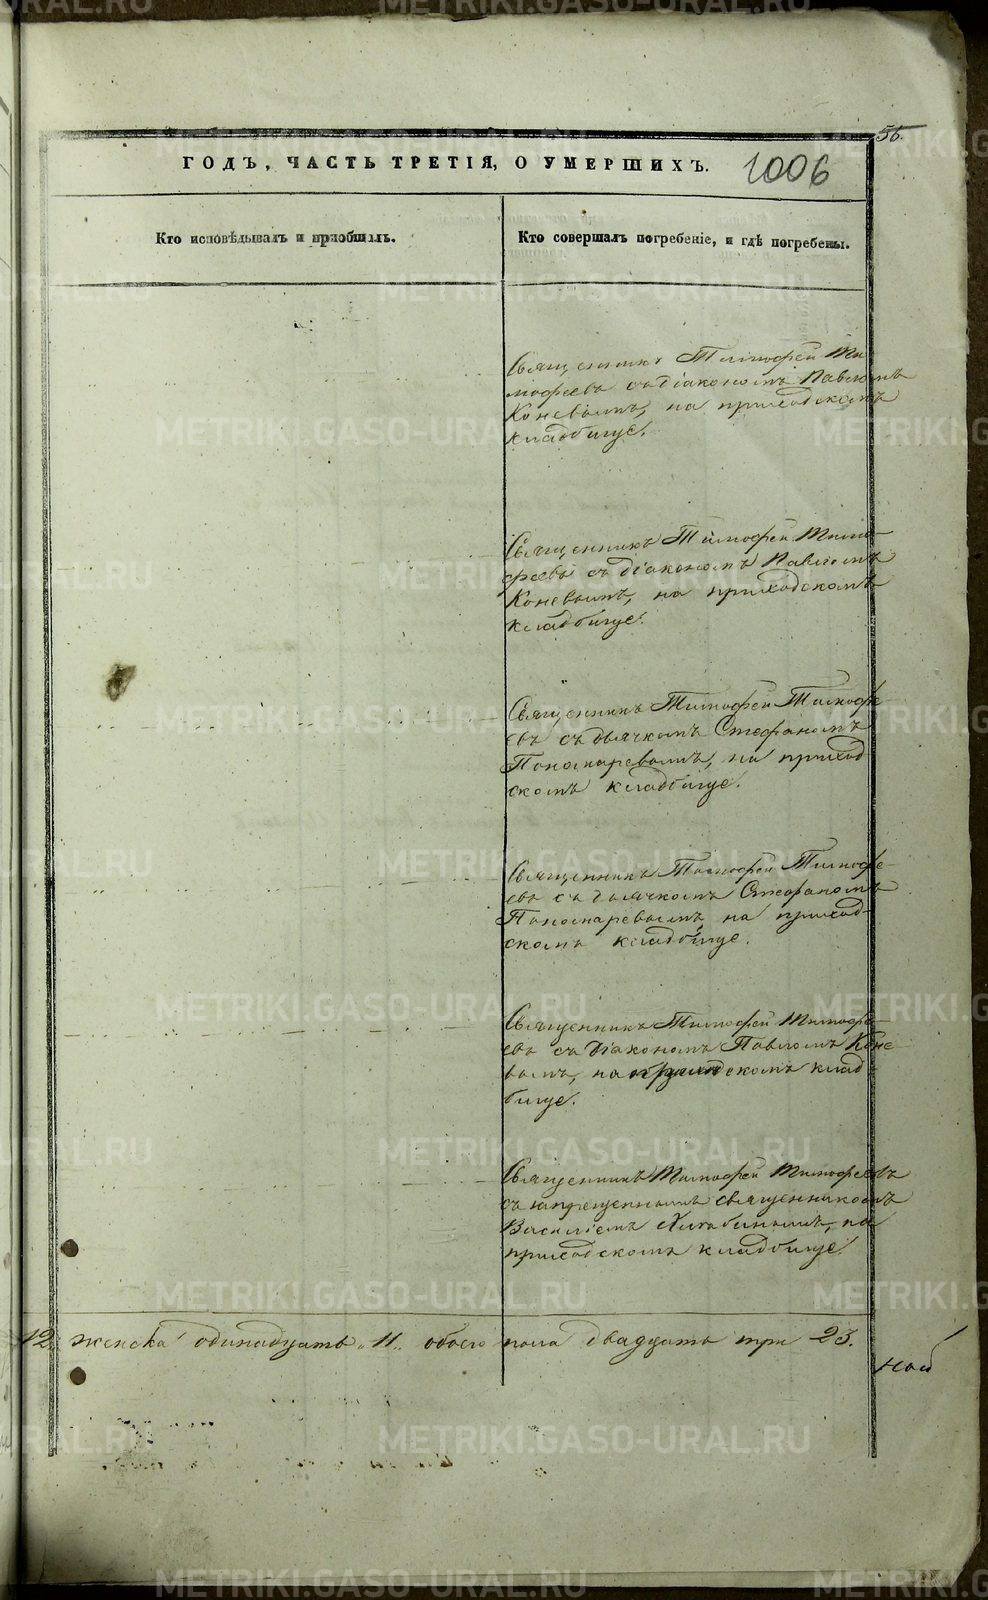 56.
ГОДЪ, ЧАСТЬ ТРЕТІЯ, О УМЕРШИХЪ. 1006
Кто исповѣдывалъ и пріобщалъ.
Кто совершалъ погребеніе, и гдѣ погребены.
Священникъ Тимофей Ти-
мофеевъ съ діакономъ Павломъ
Коневымъ, на приходскомъ
кладбище.
Священникъ Тимофей Тимо-
феевъ съ діакономъ Павломъ
Коневымъ, на приходскомъ
кладбище.
Священникъ Тимофей Тимофе-
евъ съ дьячкомъ Стефаномъ
Пономаревымъ, на приход
скомъ кладбище.
Священникъ Тимофей Тимофе-
евъ съ дьячкомъ Стефаномъ
Пономаревымъ на приход-
скомъ кладбище.
Священникъ Тимофей Тимофе-
евъ съ діакономъ Павломъ Коне-
вымъ, на приходскомъ клад-
бище.
Священникъ Тимофей Тимофеевъ
съ запрещеннымъ священникомъ
Василіемъ на
приходскомъ кладбище
12. женска одинадцать 11. обоего пола двадцать три 23.
METRIKI.GASO-URAL.RU